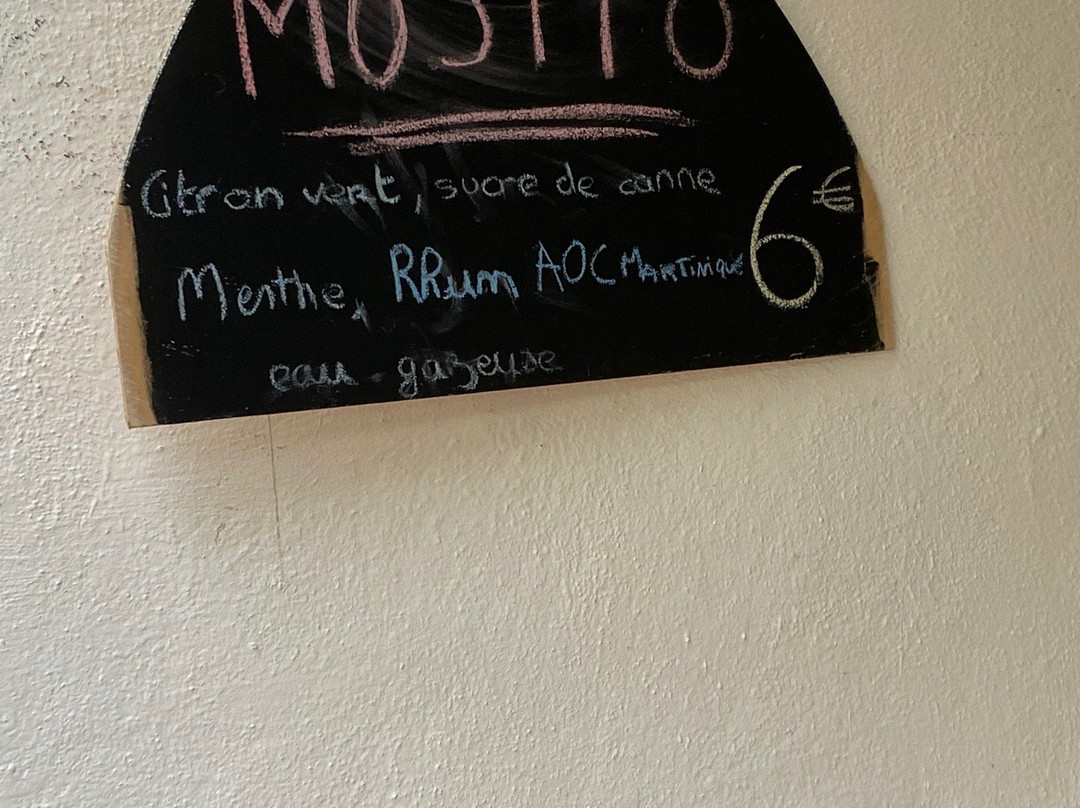 MOJITO
Citron vert, sucre de canne 6€
Menthe, RRum AOC MARTINIQUE
eau gazeuse